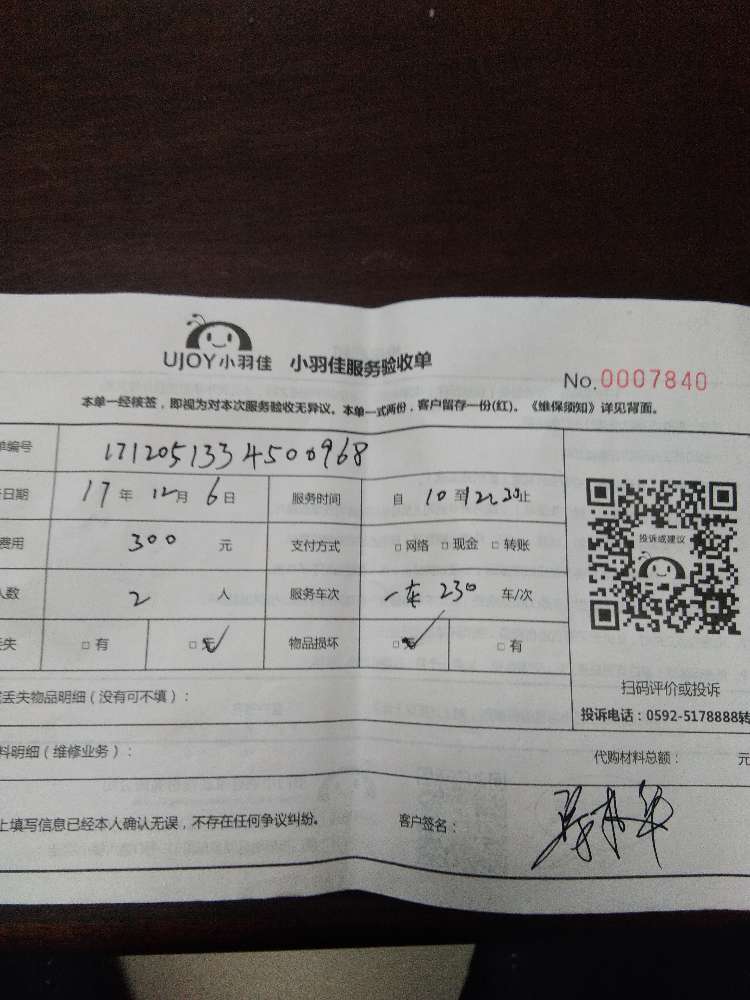 UJOY小羽佳 小羽佳服务验收单
No.0007840
本单一经核签，即视为对本次服务验收无异议。本单一式两份，客户留存一份(红)。《维保须知》详见背面。
单编号 1712051334500968
日期 17年 12月 6日 服务时间 自 10 至 12:20止
费用 300 元 支付方式 □网络 □现金 □转账
人数 2 人 服务车次 一车 230 车/次
丢失 □有 □无 物品损坏 □无 □有
投诉或建议
扫码评价或投诉
投诉电话：0592-5178888转
丢失物品明细（没有可不填）：
料明细（维修业务）： 代购材料总额： 元
上填写信息已经本人确认无误，不存在任何争议纠纷。 客户签名：